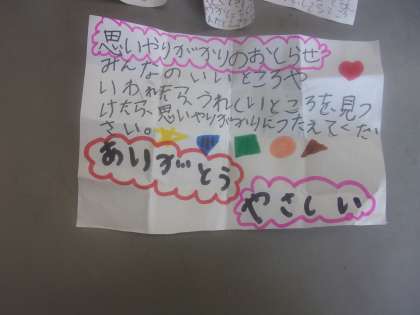 思いやりがかりのおしらせ
みんなのいいところや
いわれたら、うれしいところを、見つ
けたら、思いやりがかりにつたえてくだ
さい。
ありがとう
やさしい